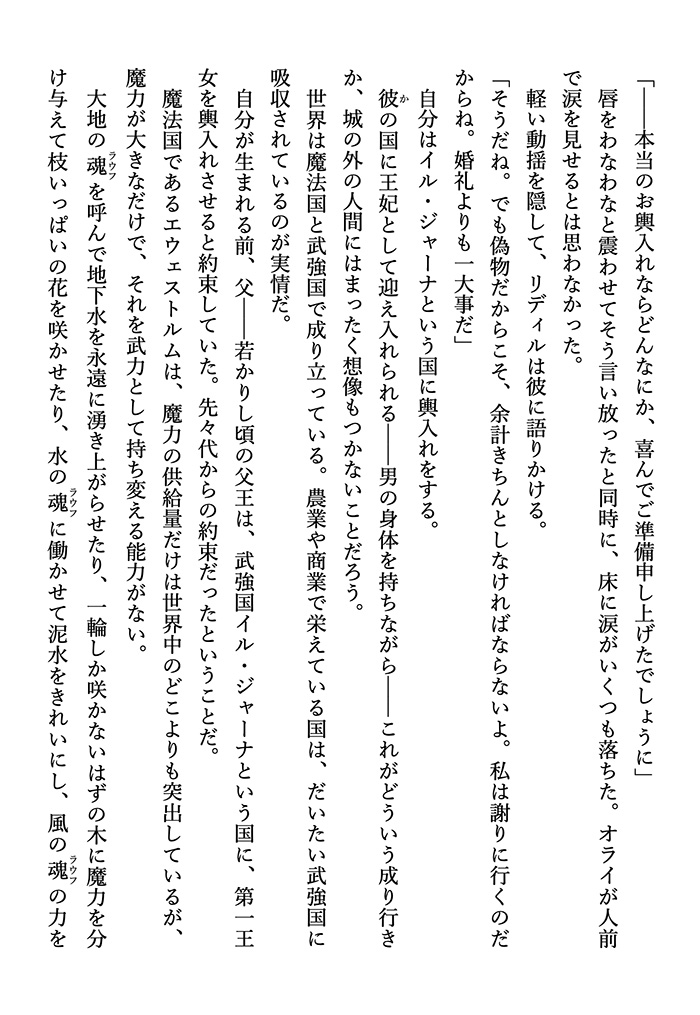 「――本当のお輿入れならどんなにか、喜んでご準備申し上げたでしょうに」
唇をわなわなと震わせてそう言い放ったと同時に、床に涙がいくつも落ちた。オライが人前
で涙を見せるとは思わなかった。
軽い動揺を隠して、リディルは彼に語りかける。
「そうだね。でも偽物だからこそ、余計きちんとしなければならないよ。私は謝りに行くのだ
からね。婚礼よりも一大事だ」
自分はイル・ジャーナという国に輿入れをする。
彼かの国に王妃として迎え入れられる――男の身体を持ちながら――これがどういう成り行き
か、城の外の人間にはまったく想像もつかないことだろう。
世界は魔法国と武強国で成り立っている。農業や商業で栄えている国は、だいたい武強国に
吸収されているのが実情だ。
自分が生まれる前、父――若かりし頃の父王は、武強国イル・ジャーナという国に、第一王
女を輿入れさせると約束していた。先々代からの約束だったということだ。
魔法国であるエウェストルムは、魔力の供給量だけは世界中のどこよりも突出しているが、
魔力が大きなだけで、それを武力として持ち変える能力がない。
大地の魂ラウフを呼んで地下水を永遠に湧き上がらせたり、一輪しか咲かないはずの木に魔力を分
け与えて枝いっぱいの花を咲かせたり、水の魂ラウフに働かせて泥水をきれいにし、風の魂ラウフの力を